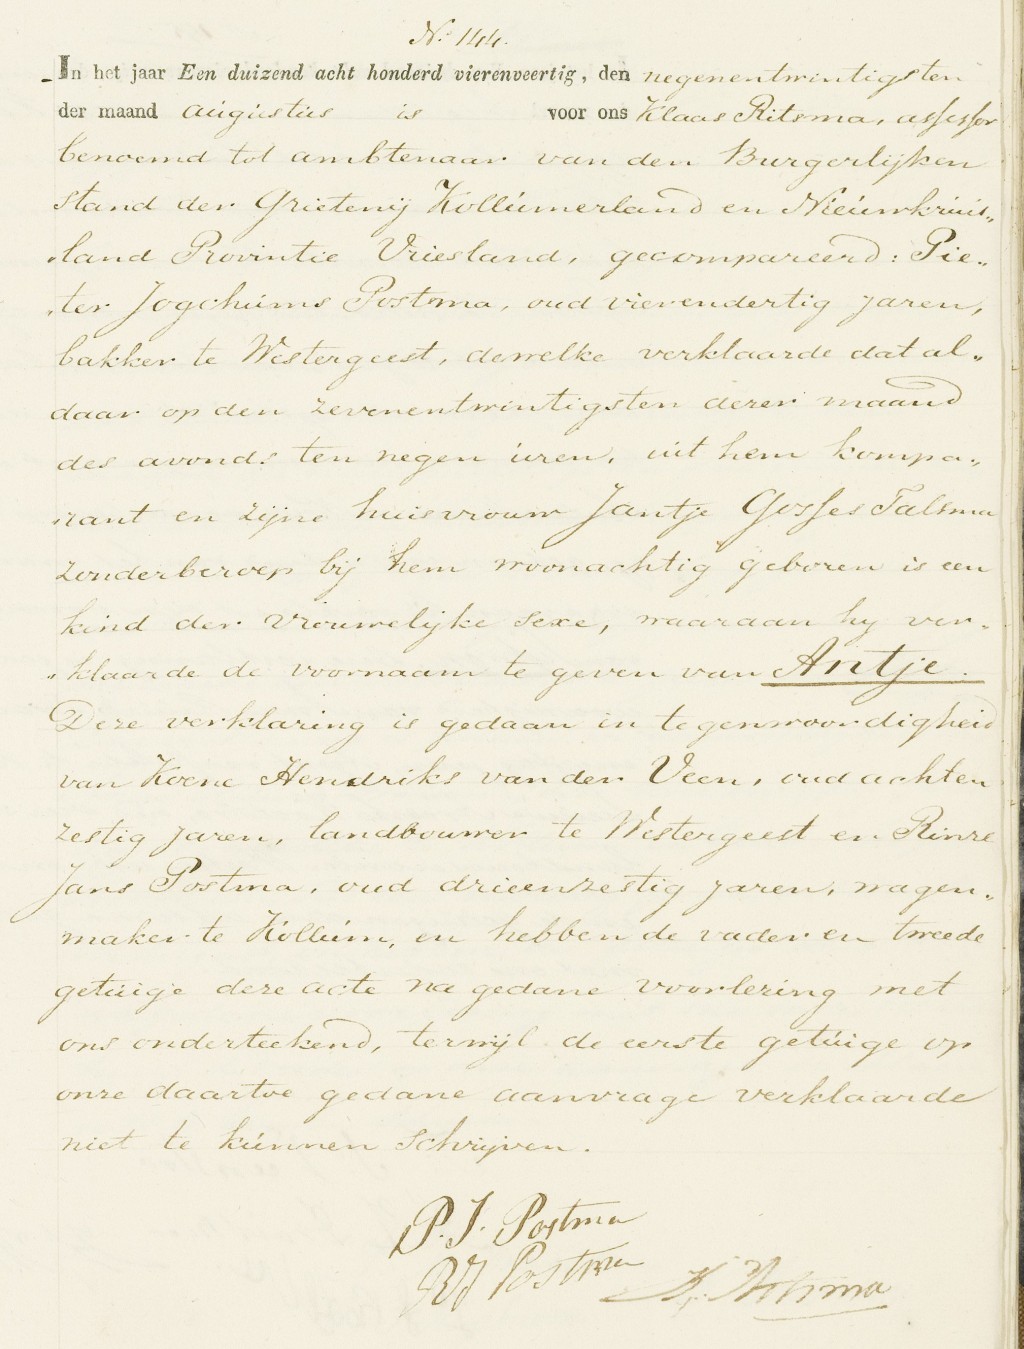 N.º 144.
In het jaar Een duizend acht honderd vierenveertig, den negenentwintigsten
der maand augustus is voor ons Klaas Ritsma, assessor
benoemd tot ambtenaar van den Burgerlijken
stand der Grietenij Kollumerland en Nieuwkruis„
„land Provintie Vriesland, gecompareerd: Pie„
„ter Jogchums Postma, oud vierendertig jaren,
bakker te Westergeest, dewelke verklaarde dat al„
daar op den zevenentwintigsten dezer maand
des avonds ten negen uren, uit hem kompa„
rant en zijne huisvrouw Jantje Gosses Talsma
zonder beroep bij hem woonachtig geboren is een
kind der vrouwelijke sexe, waaraan hy ver„
„klaarde de voornaam te geven van Antje.
Deze verklaring is gedaan in tegenwoordigheid
van Koene Hendriks van der Veen, oud achten
zestig jaren, landbouwer te Westergeest en Rinze
Jans Postma, oud drieenzestig jaren, wagen„
maker te Kollum, en hebben de vader en tweede
getuige deze acte na gedane voorlezing met
ons onderteekend, terwijl de eerste getuige op
onze daartoe gedane aanvrage verklaarde
niet te kunnen schrijven.
P. J. Postma
RJ Postma
K. Ritsma